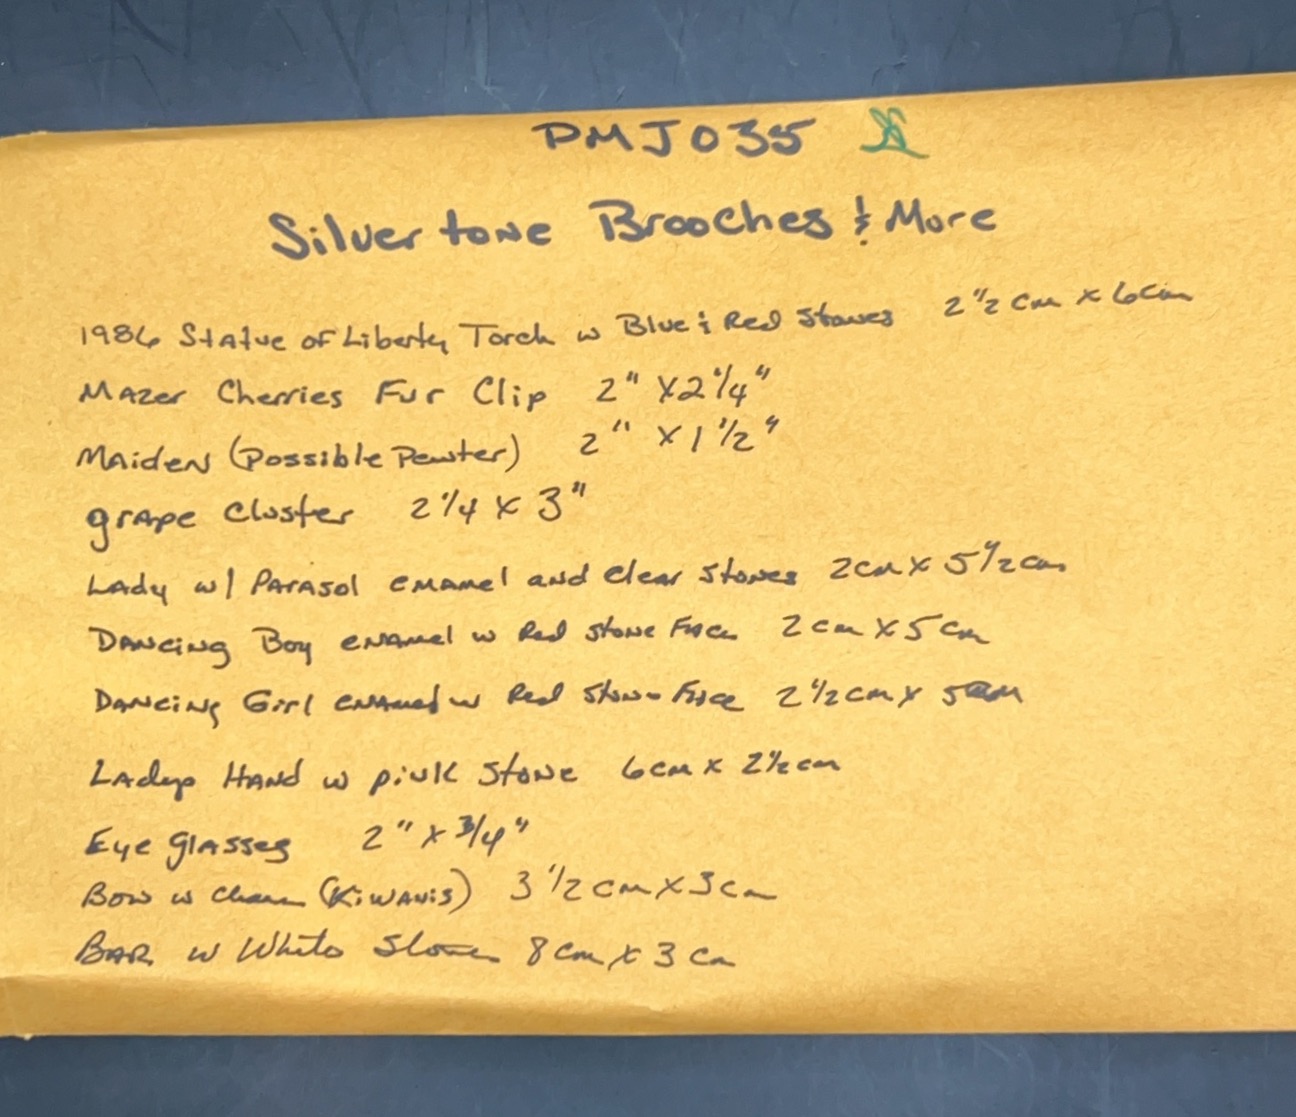 PMJ035
Silvertone Brooches & More
1986 Statue of Liberty Torch w Blue & Red Stones 2 1/2 cm x 6cm
Mazer Cherries Fur Clip 2" x 2 1/4"
Maiden (Possible Pewter) 2" x 1 1/2"
grape Cluster 2 1/4 x 3"
Lady w/ Parasol enamel and Clear Stones 2cm x 5 1/2 cm
Dancing Boy enamel w Red Stone Face 2cm x 5cm
Dancing Girl enamel w Red Stone Face 2 1/2 cm x 5cm
Ladys Hand w pink Stone 6cm x 2 1/2 cm
Eye Glasses 2" x 3/4"
Bow w Charm (Kiwanis) 3 1/2 cm x 3cm
Bar w White Stones 8cm x 3cm